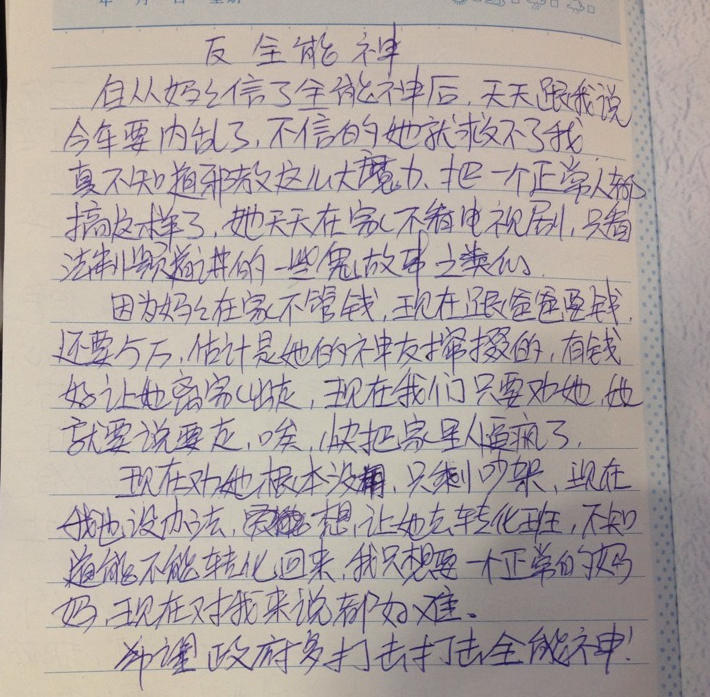 年 月 日 星期
反全能神
自从妈妈信了全能神后，天天跟我说
今年要内乱了，不信的她就救不了我
真不知道邪教这么大魔力、把一个正常人都
搞成这样了，她天天在家不看电视剧，只看
法制频道讲的一些鬼故事之类的。
因为妈妈在家不管钱，现在跟爸爸要钱，
还要5万，估计是她的神友撺掇的，有钱
好让她离家出走，现在我们只要劝她，她
就要说要走，唉，快把家里人逼疯了，
现在劝她根本没用，只剩吵架，现在
我也没办法，想，让她去转化班，不知
道能不能转化回来，我只想要一个正常的妈
妈，现在对我来说都好难。
希望政府多打击打击全能神！